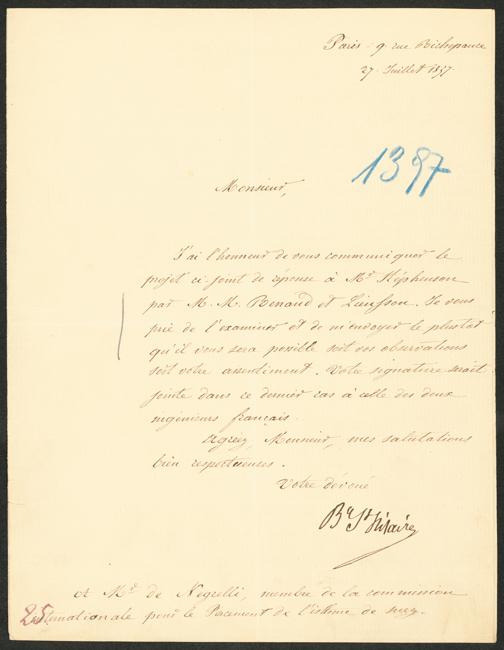 Paris. 9. rue Richepance
27. Juillet 1857.
1397
Monsieur,
J'ai l'honneur de vous communiquer le
projet ci-joint de réponse à Mr. Stéphenson
par M. M. Renaud et Lieusson. Je vous
prie de l'examiner et de m'envoyer le plustôt
qu'il vous sera possible soit vos observations
soit votre assentiment. Votre signature serait
jointe dans ce dernier cas à celle des deux
ingénieurs français.
Agréez, Monsieur, mes salutations
bien respectueuses.
Votre dévoué
By St Hilaire
A Mr. de Negrelli, membre de la commission
internationale pour le Percement de l'isthme de suez.
25